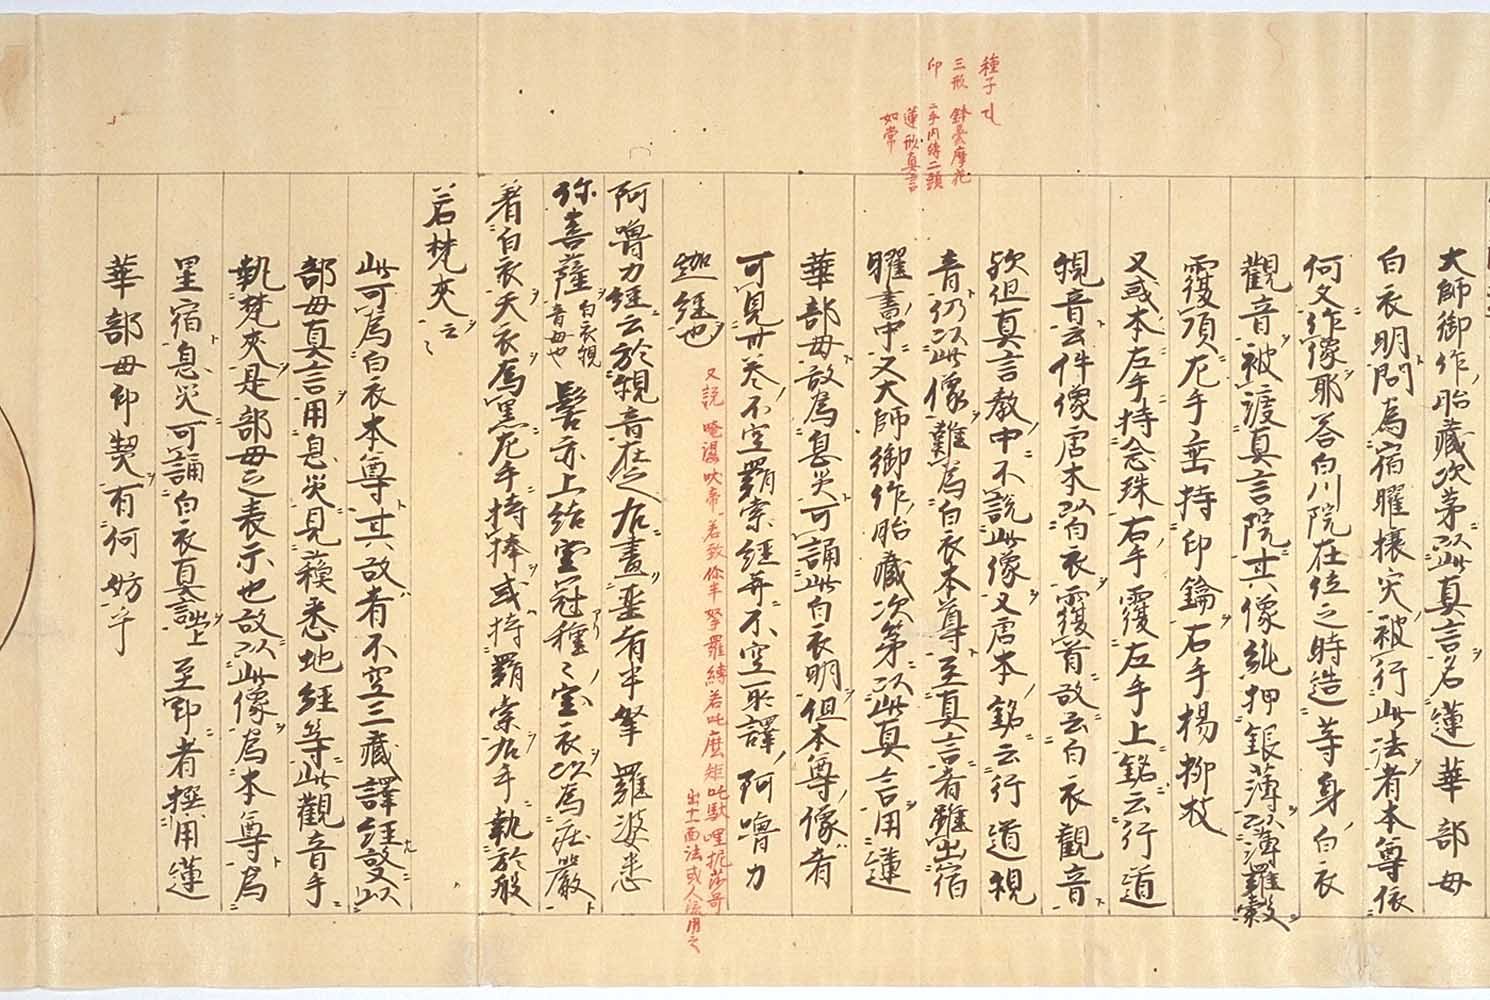 大師御作胎藏次第以此真言名蓮華部母
白衣明問為宿曜攘灾被行此法者本尊依
何文作像耶答白川院在位之時造等身白衣
觀音被渡真言院其像純押銀薄以薄羅縠
覆頂左手垂持印鑰右手揚柳枝
又或本左手持念珠右手覆左手上銘云行道
觀音云件像唐本以白衣覆首故云白衣觀音
欤但真言教中不說此像又唐本銘云行道觀
音仍以此像難為白衣本尊至真言者雖出宿
曜書中又大師御作胎藏次第以此真言用蓮
華部母故為息灾可誦此白衣明但本尊像者
可見卅卷不空羂索經并不空所譯阿嚕力
迦經也
阿嚕力經云於觀音在之右畫半拏羅婆悉
弥菩薩白衣觀音母也髻亦上結寶冠種々寶衣以為庄嚴
著白衣天衣為黑左手持捧或持羂索右手執於般
若梵夾云々
此可為白衣本尊其故者不空三藏譯經文以
部母真言用息灾見蘓悉地經等此觀音手
執梵夾是部母之表示也故以此像為本尊為
星宿息灾可誦白衣真言上至印者摂用蓮
華部母印契有何妨乎
種子
三形 鉢曇摩花
印 二手內縛二頭
蓮形真言
如常
又說 唵濕吠帝若致你半拏羅縛若吒麼矩吒馱哩抳莎哥
出十一面法或人傳用之